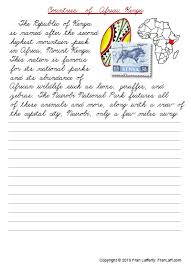 Countries of Africa: Kenya
The Republic of Kenya
is named after the second
highest mountain peak
in Africa, Mount Kenya.
This nation is famous
for its national parks
and its abundance of
African wildlife such as lions, giraffe, zebras, and
gazelles. The Nairobi National Park features all
of these animals and more, along with a view of
the capital city, Nairobi, only a few miles away.
KENYA
Copyright © 2010 Fran Lafferty FranLaff.com